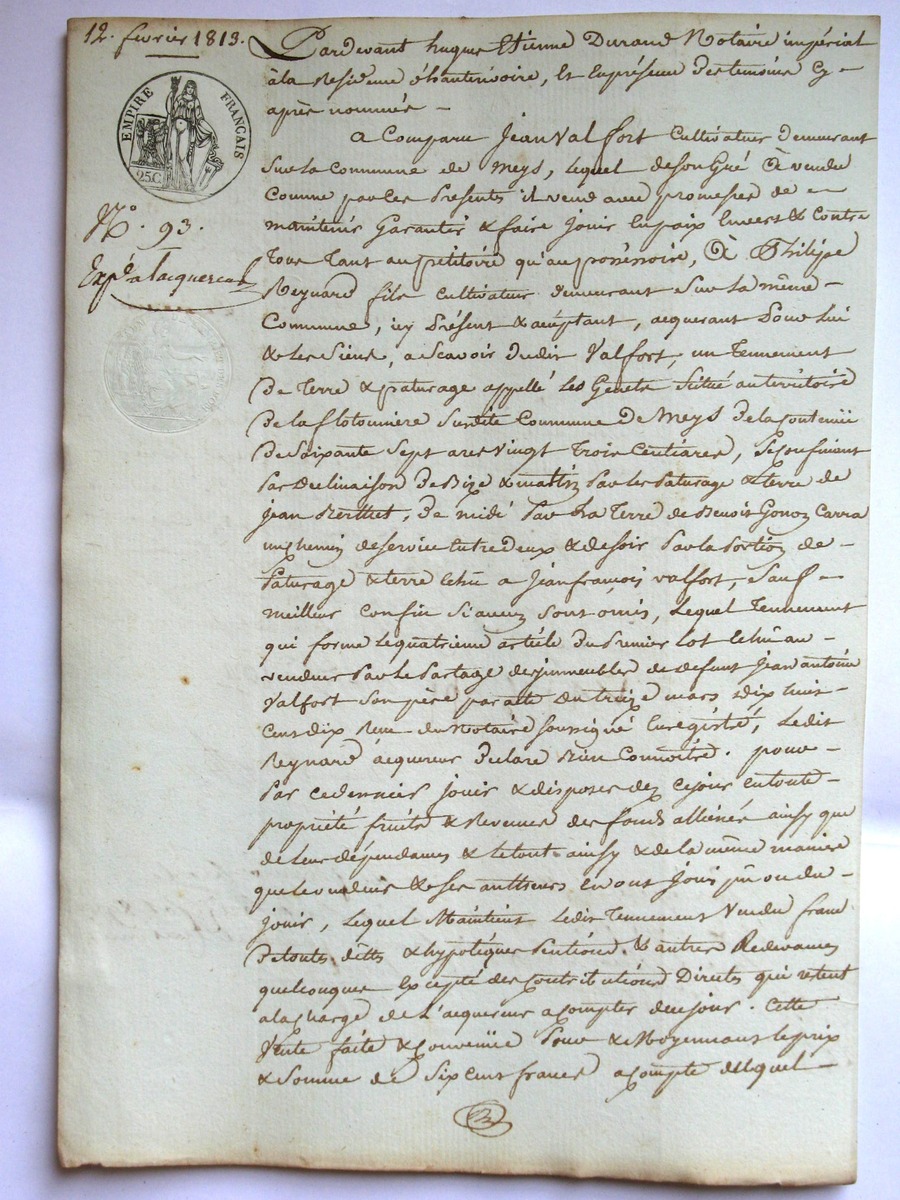 12. fevrier 1813.
EMPIRE FRANCAIS
25.C
N.º 93.
Exp.é a lacquereur
Pardevant hugues Etienne Durand Notaire impérial
à la Residence d'hauterivoire, Et En présence des temoins cy-
après nommés -
a Comparu Jean Valfort Cultivateur Demeurant
Sur la Commune de Meys, lequel de son Gué à vendu
Comme par les Présentes il vend avec promesses de -
maintenir Garantir & faire Jouir En paix Envers & Contre
Tous Tant au petitoire qu'au possessoire, à Philipe
Reynard fils Cultivateur Demeurant Sur la même -
Commune, icy Présent & acceptant, acquerant Pour Lui
& les Siens, a Scavoir Dudit Valfort, un Tennement
De Terre & paturage appellé Les Genets Situé au territoire
De la flotonniere Susdite Commune De Meys De la Contenüe
De Soixante Sept ares Vingt Trois Centiares, Se Confinant
Par Declinaison De Bize & matin Par les Paturage & terre de
jean Berthet, De midi Par La Terre de Benoit Gonon Carra
un chemin de service Entre Deux & de soir Par la Portion de -
Paturage & terre Echue a Jean françois Valfort, Sauf -
meilleur Confin Si aucuns Sont omis, Lequel Tennement
qui forme Le quatrieme article Du Premier Lot Echu au -
vendeur Par Le Partage des immeubles de defunt Jean antoine
Valfort Son père par acte Du treize mars dix huit -
Cent dix Reçu du Notaire Soussigné Enregistré, Ledit
Reynard acquereur Declare Bien Connoitre. pour -
Par ce dernier Jouir & disposer dez Ce jour En toute -
propriété fruits & Revenus des fonds alliénés ainsy que
de leur dépendances & le tout ainsy & de la même maniere
que le vendeur & ses autheurs En ont Joui pu ou du -
jouir, Lequel Maintient Ledit Tennement Vendu franc
De toutes dettes & hypotéques Pentions & autres Redevances
quelconques Excepté des Contributions Directes qui restent
a la Charge de L'acquereur a Compter de ce jour. Cette
Vente faite & Convenüe Pour & Moyennant le prix
& Somme de Six Cent francs a Compte duquel -